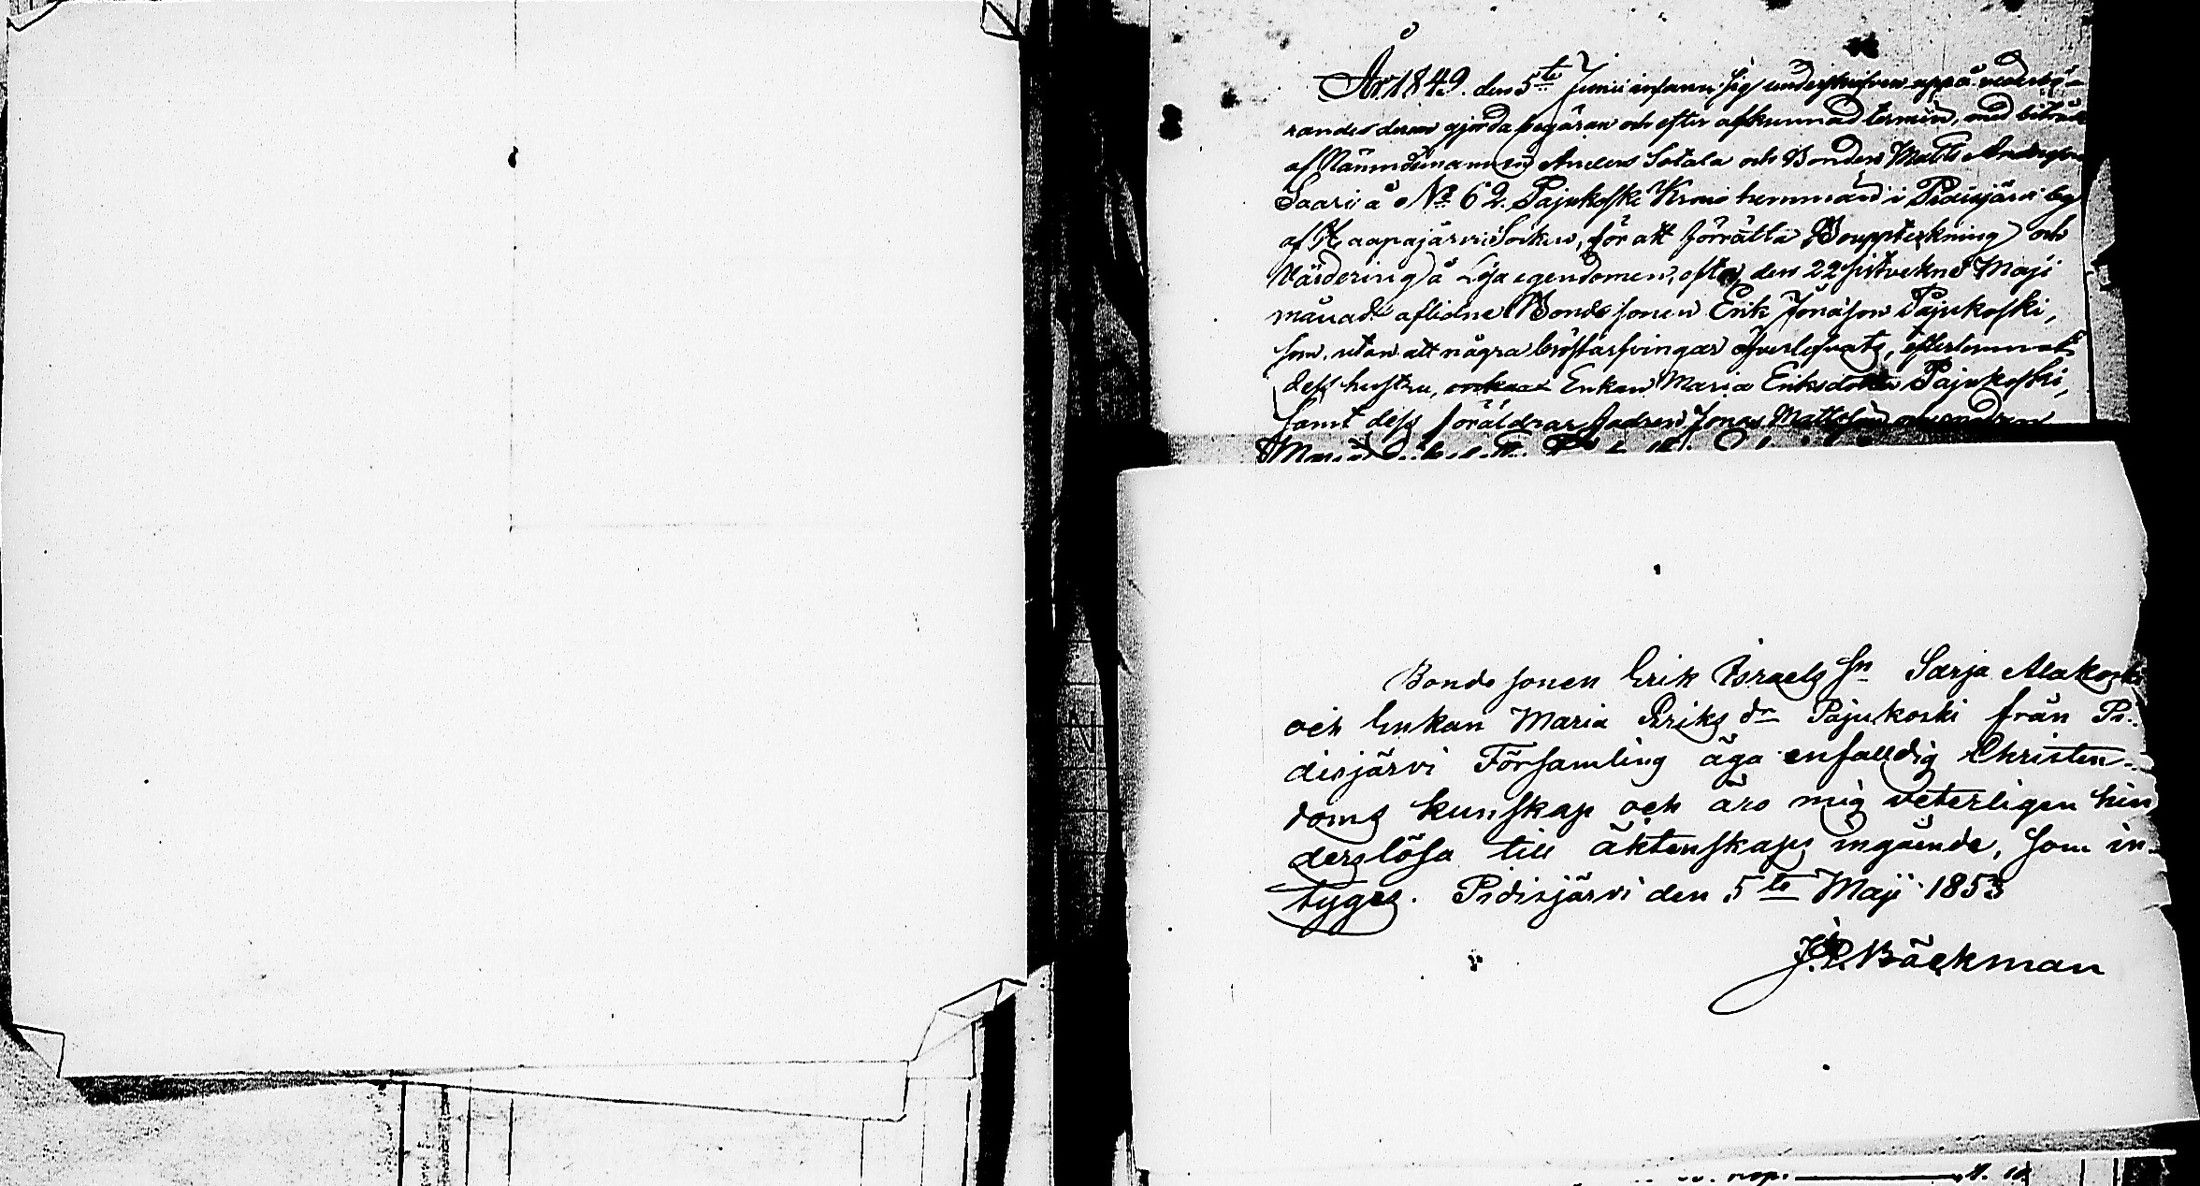 År 1849. den 5te Junii infann sig underskrifven uppå vederbö-
randes derom gjorda begäran och efter afkunnad termin, med biträde
af Nämndemannen Anders Sotala och Bonden Matts Andersson
Saari å No 62. Pajukoski Krono hemman i Pidisjärvi by
af Haapajärvi Socken, för att förrätta Bouppteckning och
Värdering å Lösa egendomen, efter den 22 sistvekne Maji
månad aflidne Bonde sonen Erik Jonasson Pajukoski,
som, utan att några bröstarfvingar öfverlefvats, efterlemnat
dess hustru, Enkan Maria Eriksdotter Pajukoski,
samt dess föräldrar fadren Jonas Mattsson och modren
Maria
Bonde sonen Erik Israels sn Sarja Alakoski
och Enkan Maria Eriks dr Pajukoski från Pi-
disjärvi Församling äga enfalldig Christen-
doms kunskap och äro mig veterligen hin
derslösa till äktenskaps ingående, som in-
tygas. Pidisjärvi den 5te Maji 1853
J. P. Bäckman